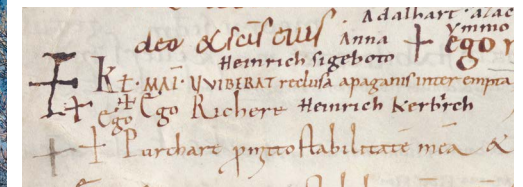 Adalhart
deo & scis eius Anna + ymmo
Heinrich sigeboto + Ego
Kt · MAI · VVIBERAT reclusa a paganis interempta
Ego Ego Richere Heinrich Kerbrich
+ Purchart pmitto stabilitate mea &